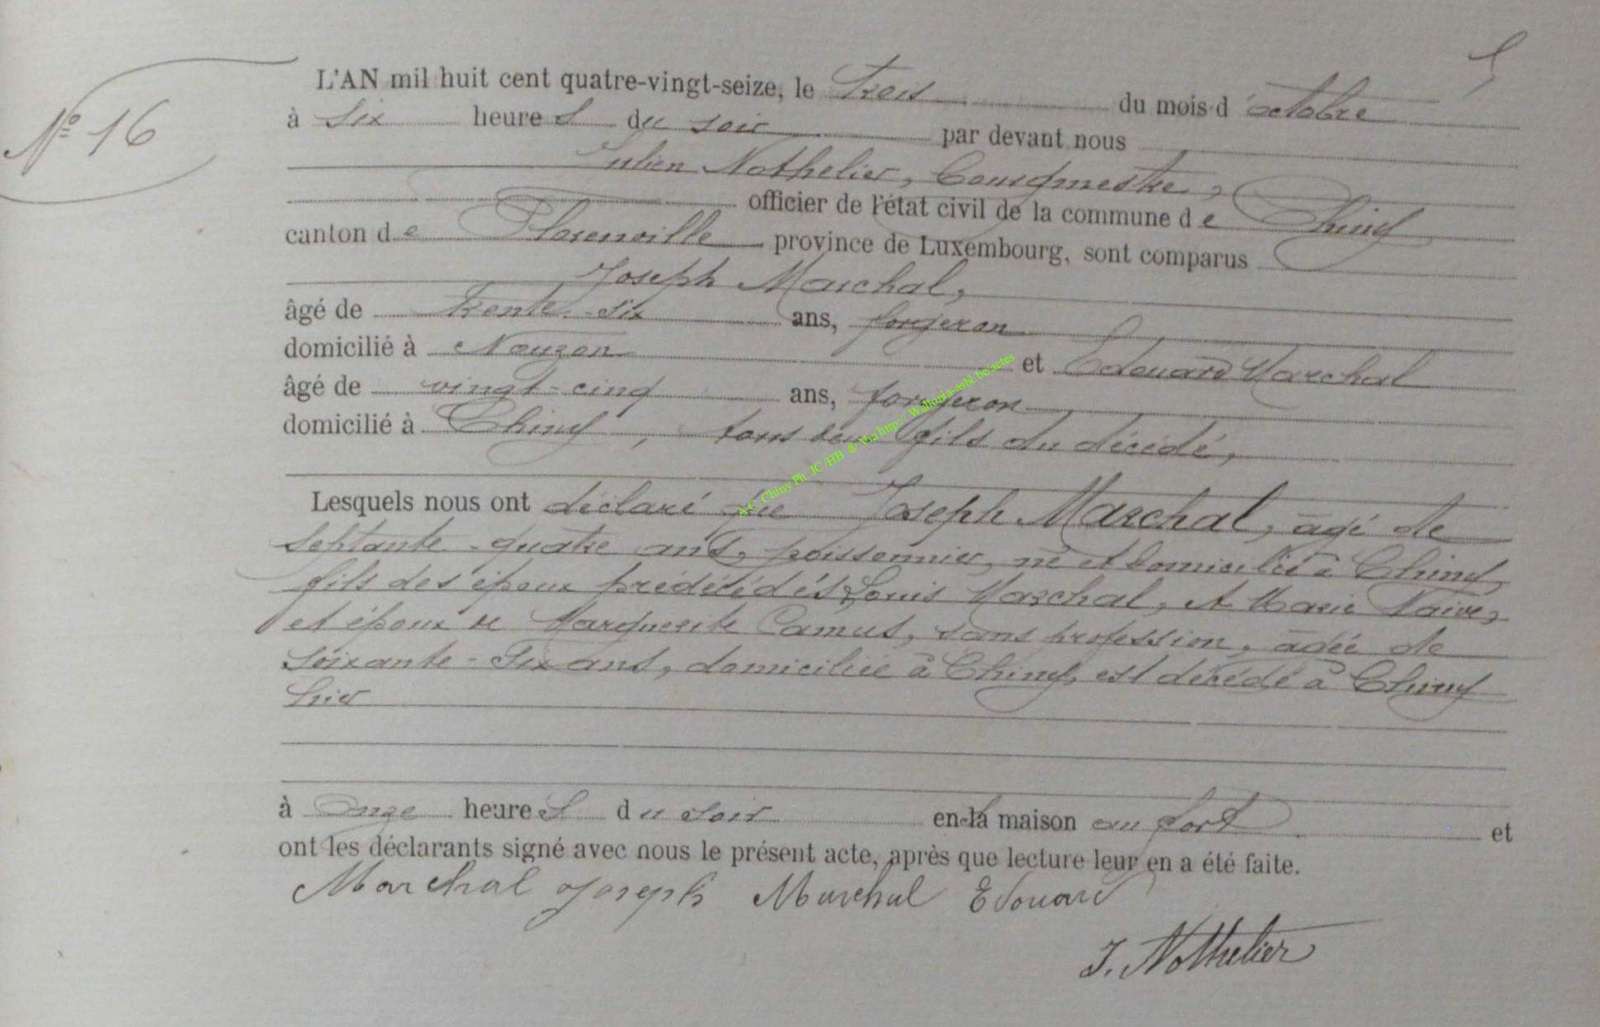 N° 16
L'AN mil huit cent quatre-vingt-seize, le trois du mois d'octobre
à six heures du soir par devant nous
Julien Nothelier, Bourgmestre,
officier de l'état civil de la commune de Chiny
canton de Florenville province de Luxembourg, sont comparus
Joseph Marchal,
âgé de trente-six ans, forgeron
domicilié à Nouzon et Edouard Marchal
âgé de vingt-cinq ans, forgeron
domicilié à Chiny, tous deux fils du décédé,
Lesquels nous ont déclaré que Joseph Marchal, âgé de
septante-quatre ans, poissonnier, né et domicilié à Chiny,
fils des époux prédécédés Louis Marchal, et Marie
et époux de Marguerite Camus, sans profession, âgée de
soixante-six ans, domiciliée à Chiny, est décédé à Chiny
hier
à onze heures du soir en la maison au fort et
ont les déclarants signé avec nous le présent acte, après que lecture leur en a été faite.
Marchal Joseph Marchal Edouard
J. Nothelier